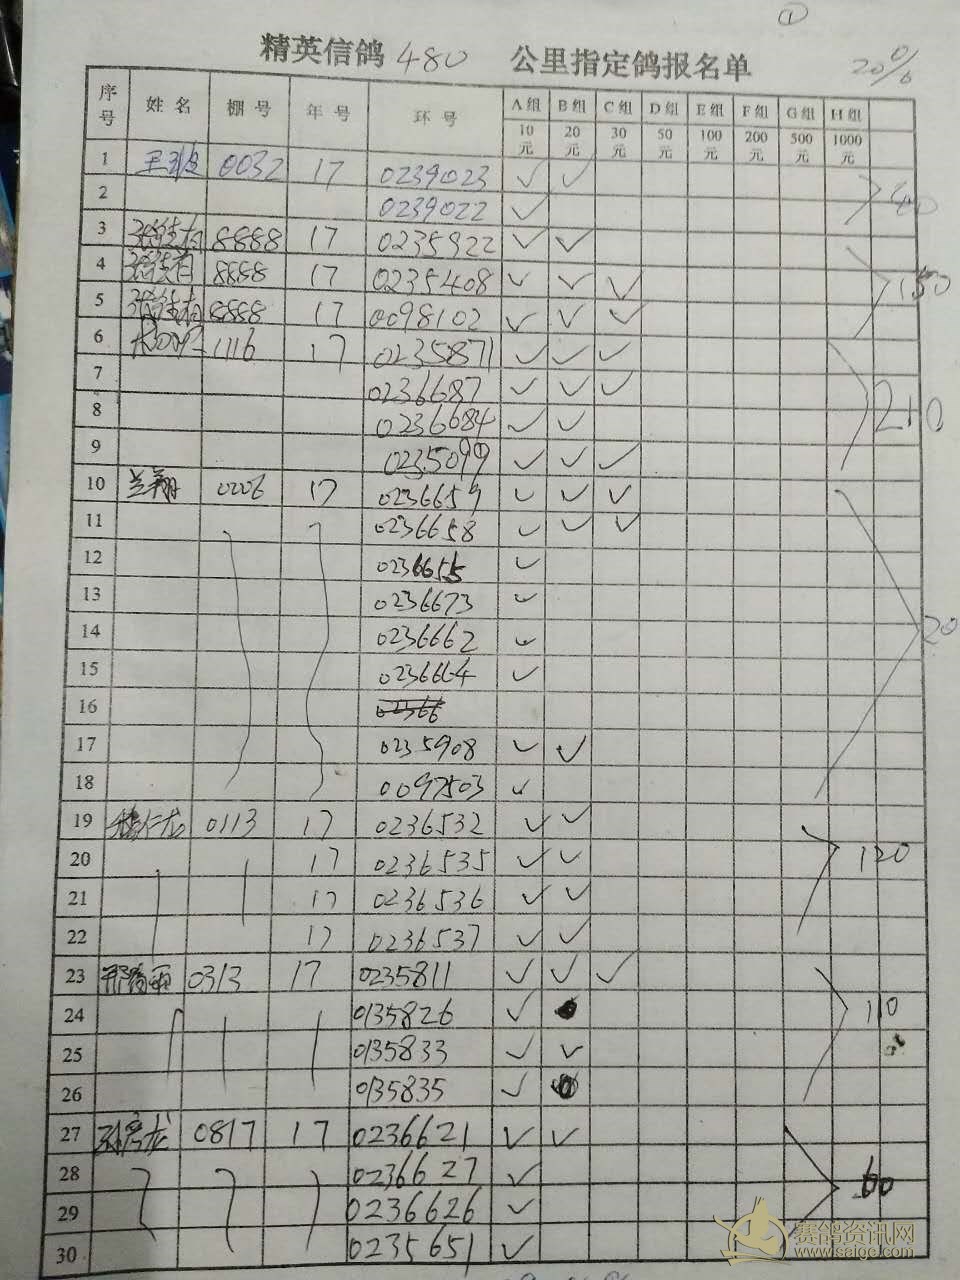 ①
精英信鸽 480 公里指定鸽报名单 20%
序号 姓名 棚号 年号 环号 A组 B组 C组 D组 E组 F组 G组 H组
10元 20元 30元 50元 100元 200元 500元 1000元
1 0032 17 0239023 ✓ ✓
2 0239022 ✓ 40
3 8888 17 0235922 ✓ ✓
4 8888 17 0235408 ✓ ✓ ✓ 150
5 8888 17 0098102 ✓ ✓ ✓
6 1116 17 0235871 ✓ ✓ ✓
7 0236687 ✓ ✓ ✓
8 0236684 ✓ ✓ 210
9 0235099 ✓ ✓ ✓
10 兰翔 0206 17 0236659 ✓ ✓ ✓
11 0236658 ✓ ✓ ✓
12 0236655 ✓
13 0236673 ✓
14 0236662 ✓ 20
15 0236664 ✓
16 02366
17 0235908 ✓ ✓
18 0097503 ✓
19 0113 17 0236532 ✓ ✓
20 17 0236535 ✓ ✓ 120
21 17 0236536 ✓ ✓
22 17 0236537 ✓ ✓
23 0313 17 0235811 ✓ ✓ ✓
24 0135826 ✓ 110
25 0135833 ✓ ✓
26 0135835 ✓
27 0817 17 0236621 ✓ ✓
28 0236627 ✓ 60
29 0236626 ✓
30 0235651 ✓
赛鸽资讯网
www.saige.com